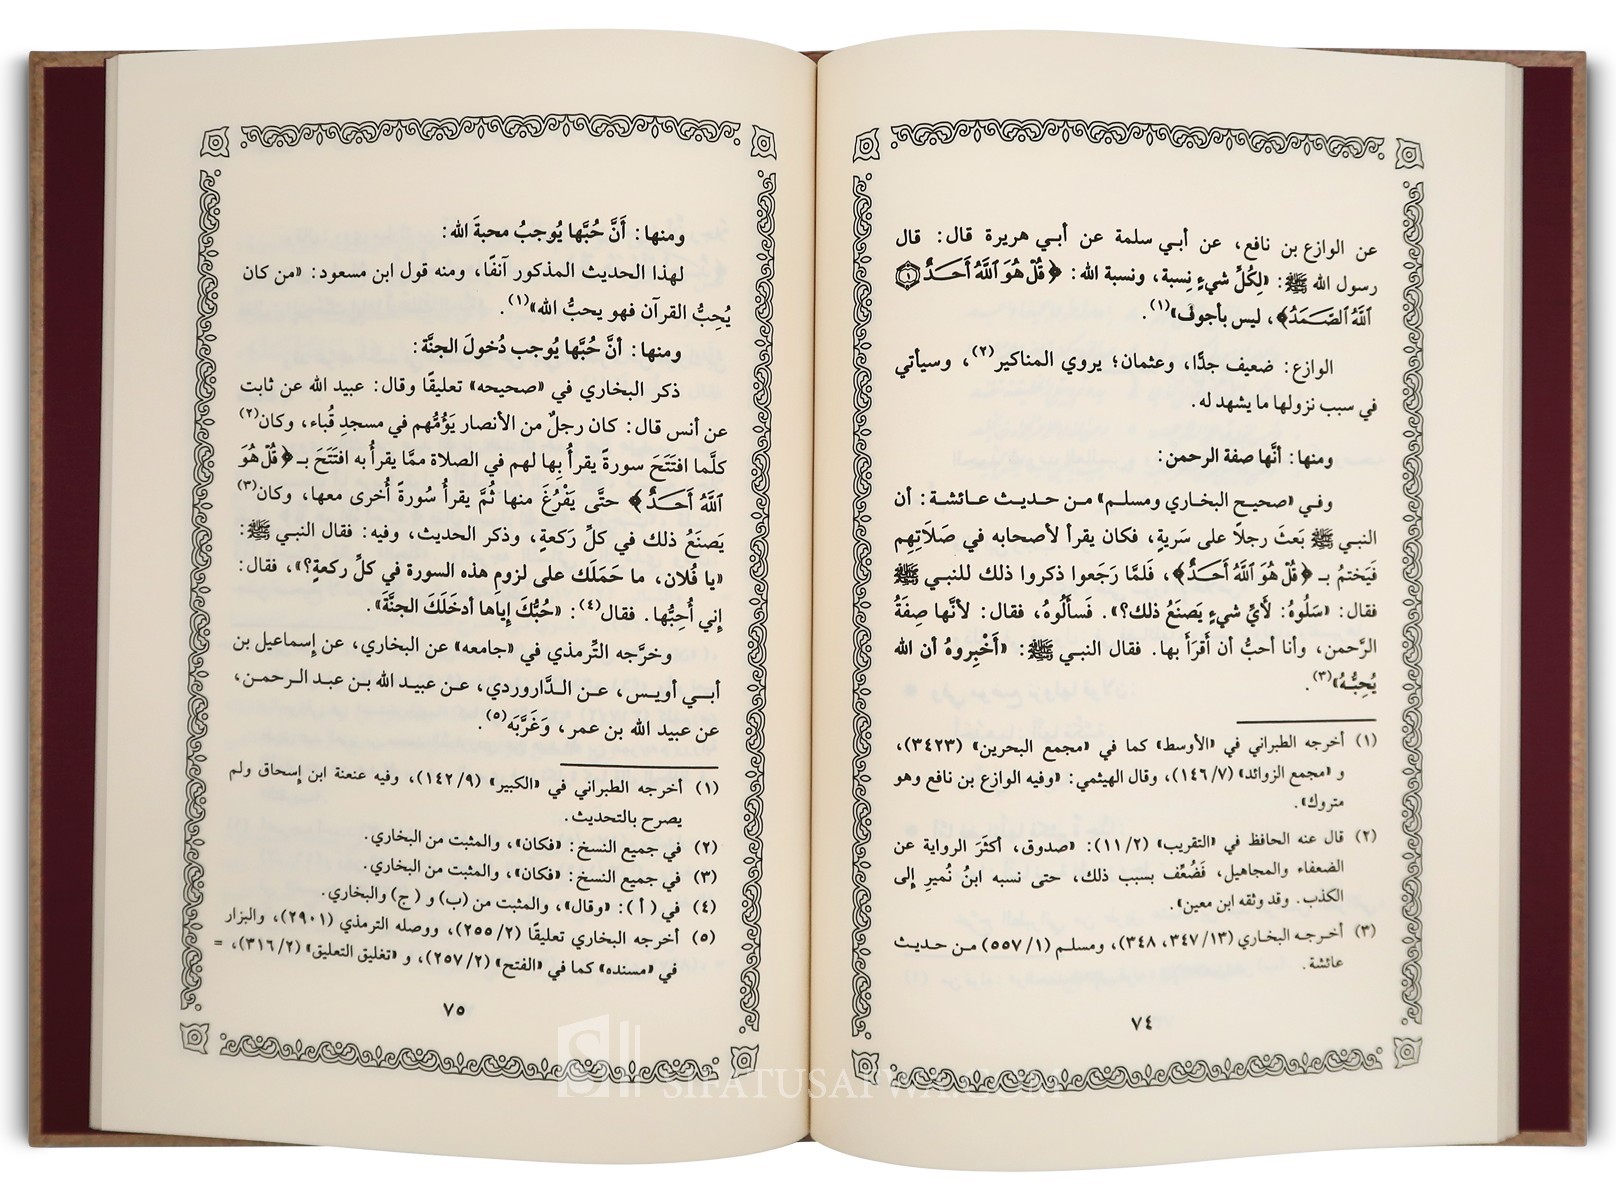 عن الوازع بن نافع، عن أبي سلمة عن أبي هريرة قال: قال
رسول الله ﷺ: «لِكُلِّ شيءٍ نِسبة، ونسبة الله: ﴿قُلْ هُوَ ٱللَّهُ أَحَدٌ ۝١
ٱللَّهُ ٱلصَّمَدُ﴾، ليس بأجوف»(١).
الوازع: ضعيف جدًّا، وعثمان؛ يروي المناكير(٢)، وسيأتي
في سبب نزولها ما يشهد له.
ومنها: أنَّها صفة الرحمن:
وفي «صحيح البخاري ومسلم» من حديث عائشة: أن
النبي ﷺ بَعثَ رجلًا على سَريةٍ، فكان يقرأ لأصحابه في صَلَاتِهِم
فَيَختمُ بـ ﴿قُلْ هُوَ ٱللَّهُ أَحَدٌ﴾، فَلمَّا رَجَعوا ذكروا ذلك للنبي ﷺ
فقال: «سَلُوهُ: لأَيِّ شيءٍ يَصنَعُ ذلك؟». فَسألُوهُ، فقال: لأنَّها صِفَةُ
الرَّحمن، وأنا أحبُّ أن أَقرَأَ بها. فقال النبي ﷺ: «أَخْبِروهُ أن الله
يُحِبُّهُ»(٣).
(١) أخرجه الطبراني في «الأوسط» كما في «مجمع البحرين» (٣٤٢٣)،
و «مجمع الزوائد» (١٤٦/٧)، وقال الهيثمي: «وفيه الوازع بن نافع وهو
متروك».
(٢) قال عنه الحافظ في «التقريب» (١١/٢): «صدوق، أكثرَ الرواية عن
الضعفاء والمجاهيل، فَضُعِّف بسبب ذلك، حتى نسبه ابنُ نُميرِ إلى
الكذب. وقد وثقه ابن معين».
(٣) أخرجه البخاري (٣٤٧/١٣، ٣٤٨)، ومسلم (٥٥٧/١) من حديث
عائشة.
٧٤
ومنها: أَنَّ حُبَّها يُوجبُ محبةَ الله:
لهذا الحديث المذكور آنفًا، ومنه قول ابن مسعود: «من كان
يُحِبُّ القرآن فهو يحبُّ الله»(١).
ومنها: أنَّ حُبَّها يُوجب دُخولَ الجنَّة:
ذكر البخاري في «صحيحه» تعليقًا وقال: عبيد الله عن ثابت
عن أنس قال: كان رجلٌ من الأنصار يَؤُمُّهم في مسجدِ قُباء، وكان(٢)
كلَّما افتَتَحَ سورةً يقرأُ بِها لهم في الصلاة ممَّا يقرأُ به افتَتَحَ بـ ﴿قُلْ هُوَ
ٱللَّهُ أَحَدٌ﴾ حتَّى يَفْرُغَ منها ثُمَّ يقرأُ سُورةً أُخرى معها، وكان(٣)
يَصنَعُ ذلك في كلِّ رَكعةٍ، وذكر الحديث، وفيه: فقال النبي ﷺ:
«يا فُلان، ما حَمَلَك على لزومِ هذه السورة في كلِّ ركعةٍ؟»، فقال:
إني أُحِبُّها. فقال(٤): «حُبُّكَ إياها أدخَلَكَ الجنَّةَ».
وخرَّجه التِّرمذي في «جامعه» عن البخاري، عن إسماعيل بن
أبي أويس، عن الدَّاروردي، عن عبيد الله بن عبد الرحمن،
عن عبيد الله بن عمر، وَغَرَّبَه(٥).
(١) أخرجه الطبراني في «الكبير» (١٤٢/٩)، وفيه عنعنة ابن إسحاق ولم
يصرح بالتحديث.
(٢) في جميع النسخ: «فكان»، والمثبت من البخاري.
(٣) في جميع النسخ: «فكان»، والمثبت من البخاري.
(٤) في ( أ ): «وقال»، والمثبت من (ب) و ( ج) والبخاري.
(٥) أخرجه البخاري تعليقًا (٢٥٥/٢)، ووصله الترمذي (٢٩٠١)، والبزار
في «مسنده» كما في «الفتح» (٢٥٧/٢)، و «تغليق التعليق» (٣١٦/٢)، =
٧٥
SIFATUSAFWA.COM